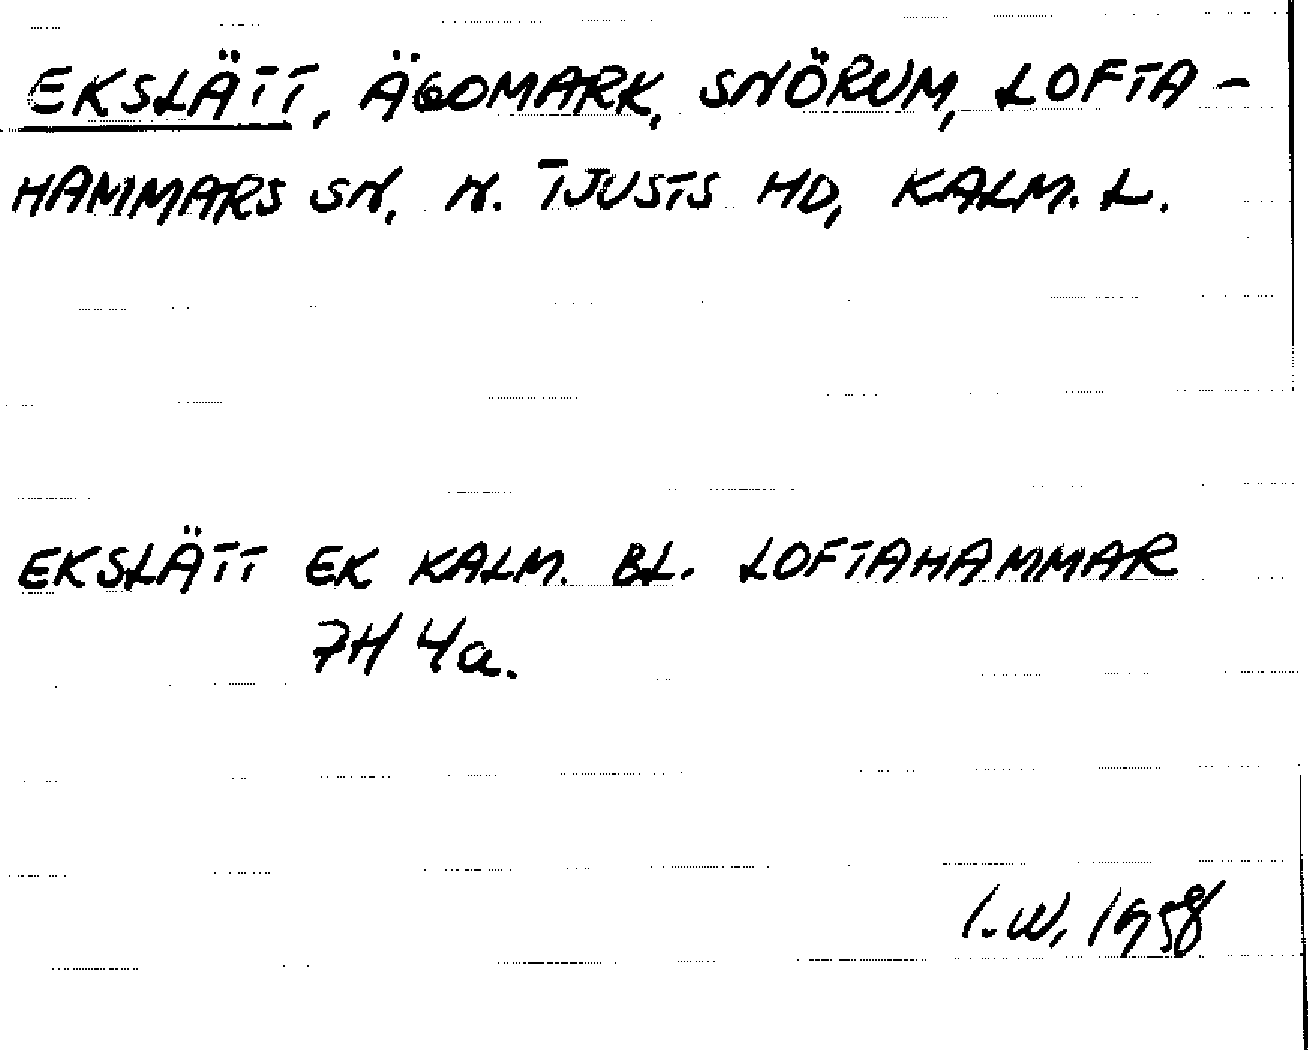 EKSLÄTT, ÄGOMARK, SNÖRUM, LOFTA-
HAMMARS SN, N. TJUSTS HD, KALM. L.
EKSLÄTT EK KALM. BL. LOFTAHAMMAR
7H 4a.
I.W. 1958